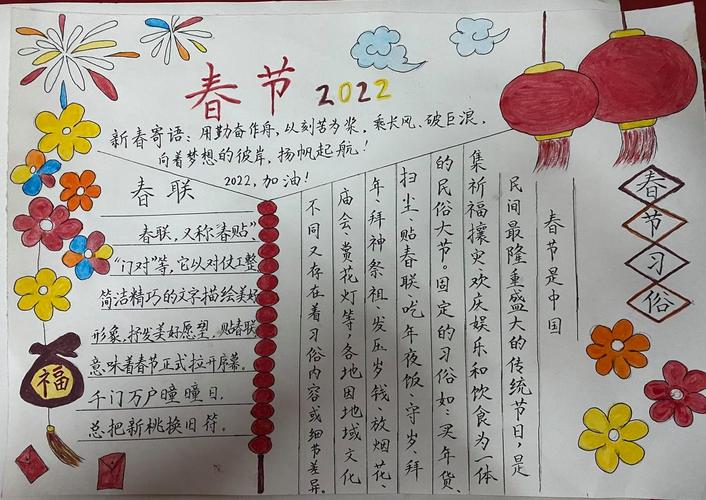 春节 2022
新春寄语：用勤奋作舟，以刻苦为桨，乘长风、破巨浪，
向着梦想的彼岸，扬帆起航！
2022，加油！
春联
春联，又称"春贴"、
"门对"等，它以对仗工整
简洁精巧的文字描绘美好
形象，抒发美好愿望，贴春联
意味着春节正式拉开序幕。
千门万户曈曈日，
总把新桃换旧符。
福
春节习俗
春节是中国
民间最隆重盛大的传统节日，是
集祈福攘灾、欢庆娱乐和饮食为一体
的民俗大节。固定的习俗如：买年货、
扫尘、贴春联、吃年夜饭、守岁、拜
年、拜神祭祖、发压岁钱、放烟花、
庙会、赏花灯等，各地因地域文化
不同又存在着习俗内容或细节差异。